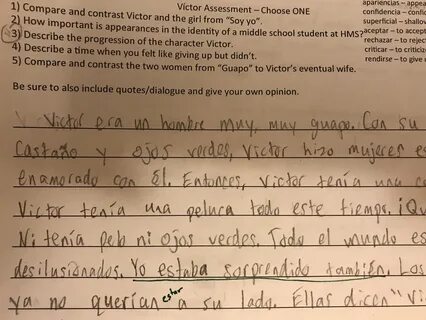 Victor Assessment – Choose ONE
1) Compare and contrast Victor and the girl from "Soy yo".
2) How important is appearances in the identity of a middle school student at HMS?
3) Describe the progression of the character Victor.
4) Describe a time when you felt like giving up but didn't.
5) Compare and contrast the two women from "Guapo" to Victor's eventual wife.
apariencias – appea
confidencia – confid
superficial – shallow
aceptar – to accept
rechazar – to reject
criticar – to criticiz
rendirse – to give
Be sure to also include quotes/dialogue and give your own opinion.
Victor era un hombre muy, muy guapo. Con su
Castaño y ojos verdes, Victor hizo mujeres es
enamorado con él. Entonces, Victor tenía una c
Victor tenía una peluca todo este tiempo. ¡Qu
Ni tenía pelo ni ojos verdes. Todo el mundo es
desilusionados. Yo estaba sorprendido también. Los
ya no querían estar a su lado. Ellas dicen "Vi